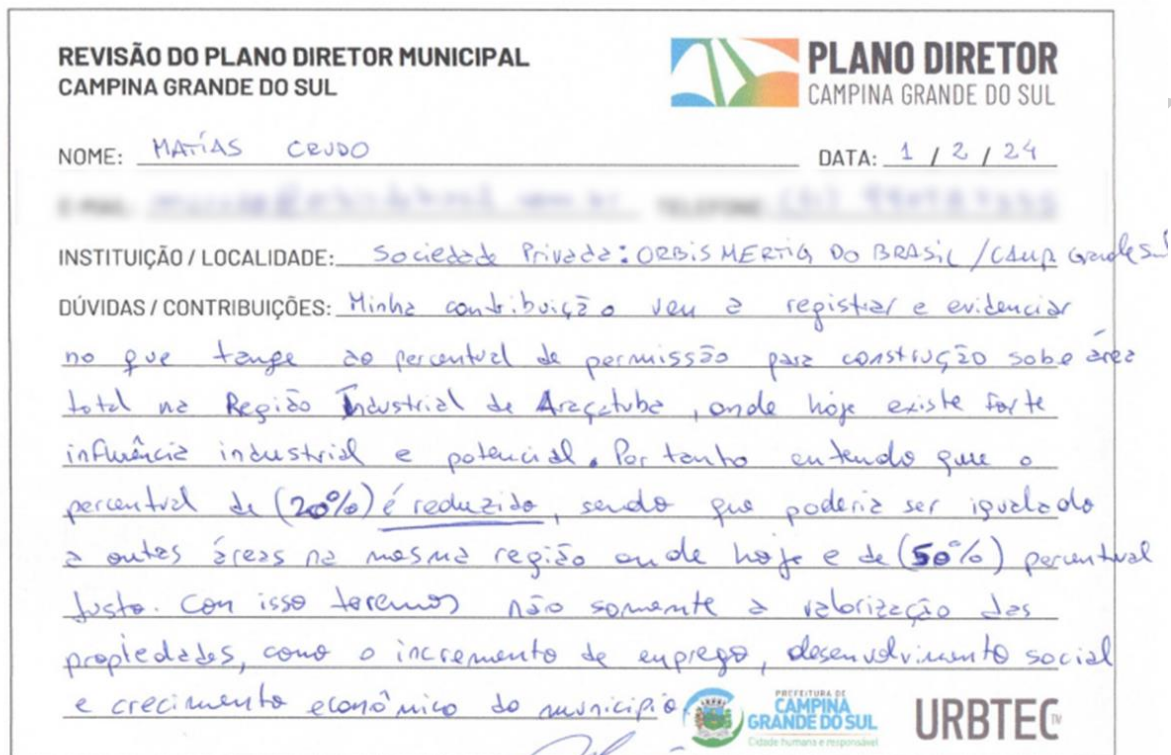 REVISÃO DO PLANO DIRETOR MUNICIPAL
CAMPINA GRANDE DO SUL
PLANO DIRETOR
CAMPINA GRANDE DO SUL
NOME: MATÍAS CRUDO DATA: 1 / 2 / 24
INSTITUIÇÃO / LOCALIDADE: Sociedade Privada: ORBIS MERTIG DO BRASIL / CAMP. Grande Sul
DÚVIDAS / CONTRIBUIÇÕES: Minha contribuição ven a registrar e evidenciar
no que tange ao percentual de permissão para construção sobe área
total na Região Industrial de Araçatuba, onde hoje existe forte
influência industrial e potencial. Por tanto entendo que o
percentual de (20%) é reduzido, sendo que poderia ser igualado
a outas áreas na mesma região onde hoje e de (50%) percentual
justo. Con isso teremos não somente a valorização das
propiedades, como o incremento de emprego, desenvolvimento social
e crecimento econômico do município
PREFEITURA DE
CAMPINA
GRANDE DO SUL
Cidade humana e responsável
URBTEC